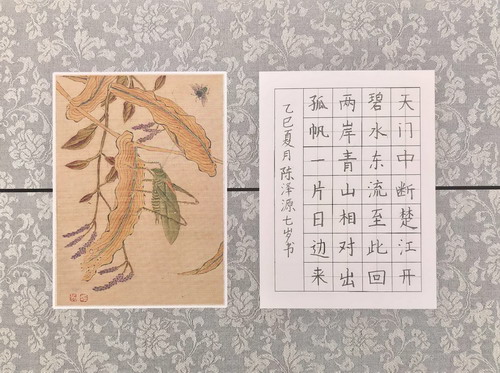 天门中断楚江开
碧水东流至此回
两岸青山相对出
孤帆一片日边来
乙巳夏月 陈泽源七岁书